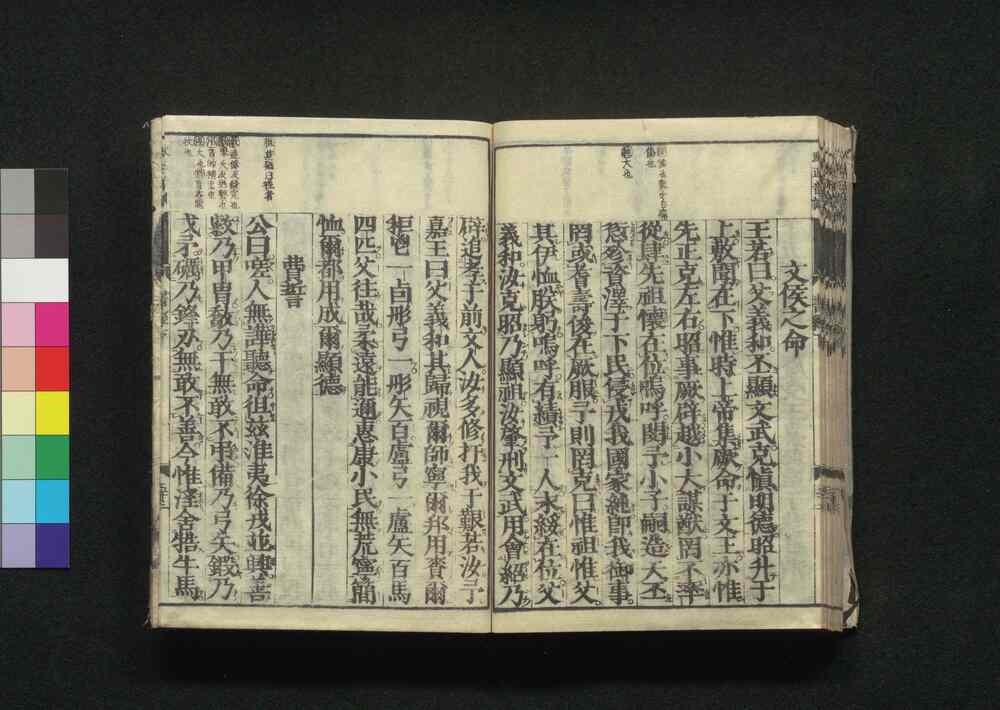 文侯之命
王若曰父義和丕顯文武克愼明德昭升于
上敷聞在下惟時上帝集厥命于文王亦惟
先正克左右昭事厥辟越小大謀猷罔不率
從肆先祖懷在位嗚呼閔予小子嗣造天丕
愆殄資澤于下民侵戎我國家純卽我御事
罔或耆壽俊在厥服予則罔克曰惟祖惟父
其伊恤朕躬嗚呼有績予一人永綏在位父
義和汝克昭乃顯祖汝肇刑文武用會紹乃
辟追孝于前文人汝多修扞我于艱若汝予
嘉王曰父義和其歸視爾師寧爾邦用賚爾
秬鬯一卣彤弓一彤矢百盧弓一盧矢百馬
四匹父往哉柔遠能邇惠康小民無荒寧簡
恤爾都用成爾顯德
費誓
公曰嗟人無譁聽命徂兹淮夷徐戎並興善
敹乃甲冑敿乃干無敢不弔備乃弓矢鍛乃
戈矛礪乃鋒刃無敢不善今惟淫舍牿牛馬